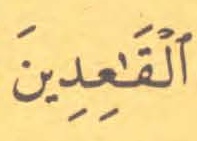 ٱلۡقَـٰعِدِينَ